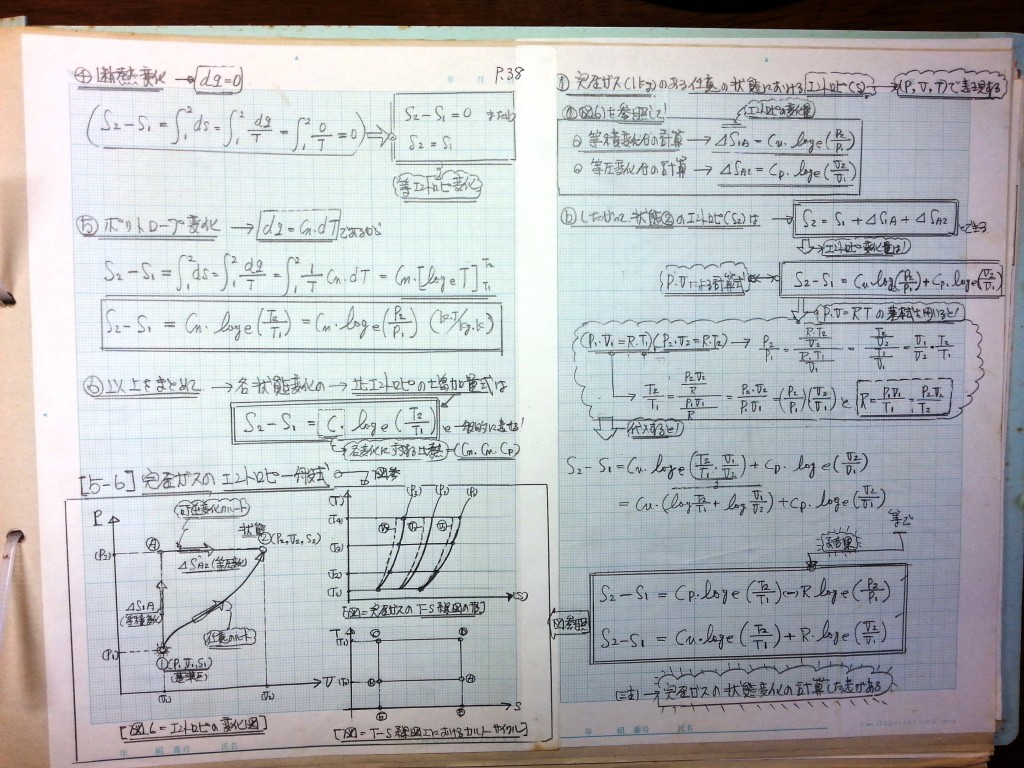 P.38
④ 断熱変化 → dq=0
(S₂-S₁=∫₁²ds=∫₁²dq/T=∫₁²0/T=0) ⇒ S₂-S₁=0 または
S₂=S₁
等エントロピ変化
⑤ ポリトロープ変化 → dq=Cn.dT であるから
S₂-S₁=∫₁²ds=∫₁²dq/T=∫₁²1/T Cn.dT=Cn.[loge T]T₂T₁
S₂-S₁=Cn.loge(T₂/T₁)=Cn.loge(P₂/P₁) (kJ/kg.k)
⑥ 以上をまとめて → 各状態変化の → 比エントロピの増加量式は
S₂-S₁=C.loge(T₂/T₁) と一般的に表せる!
各変化に対する比熱 (Cn. Cv. Cp)
[5-6] 完全ガスのエントロピ一般式 図参
P
可逆変化のルート
状態
②(P₂,V₂,S₂)
(P₂)
Ⓐ
ΔSA2 (等圧変化)
ΔS1A
(等積変化)
任意のルート
(P₁)
①(P₁,V₁,S₁)
(基準点)
V
(V₁)
(V₂)
[図6=エントロピの変化図]
S
[図=完全ガスのT-S線図の層]
S
[図=T-S線図上におけるカルノーサイクル]
図参照
完全ガス(1kg)のある任意の状態におけるエントロピ(S) → (P,V,T)で表現する
ⓐ 図6)を参照して! エントロピの変化量
⊙ 等積変化分の計算 → ΔS1A=Cv.loge(P₂/P₁)
⊙ 等圧変化分の計算 → ΔSA2=Cp.loge(V₂/V₁)
ⓑ したがって 状態②のエントロピ(S₂)は S₂=S₁+ΔS1A+ΔSA2 となる
エントロピ変化量は!
P.Vによる計算式 S₂-S₁=Cv.log(P₂/P₁)+Cp.loge(V₂/V₁)
P.V=RTの式を用いると!
(P₁.V₁=R.T₁)(P₂.V₂=R.T₂) → P₂/P₁=(R.T₂/V₂)/(R.T₁/V₁)=(T₂/V₂)/(T₁/V₁)=V₁/V₂.T₂/T₁
T₂/T₁=(P₂V₂/R)/(P₁V₁/R)=P₂.V₂/P₁.V₁=(P₂/P₁)(V₂/V₁) と R=P₁V₁/T₁=P₂V₂/T₂
代入すると!
S₂-S₁=Cv.loge(T₂/T₁.V₁/V₂)+Cp.loge(V₂/V₁)
=Cv.(log T₂/T₁+log V₁/V₂)+Cp.loge(V₂/V₁)
等で
結果
S₂-S₁=Cp.loge(T₂/T₁)-R.loge(P₂/P₁)
S₂-S₁=Cv.loge(T₂/T₁)+R.loge(V₂/V₁)
→ 完全ガスの状態変化の計算した表がある
年 組 番号 氏名
年 組 番号 氏名